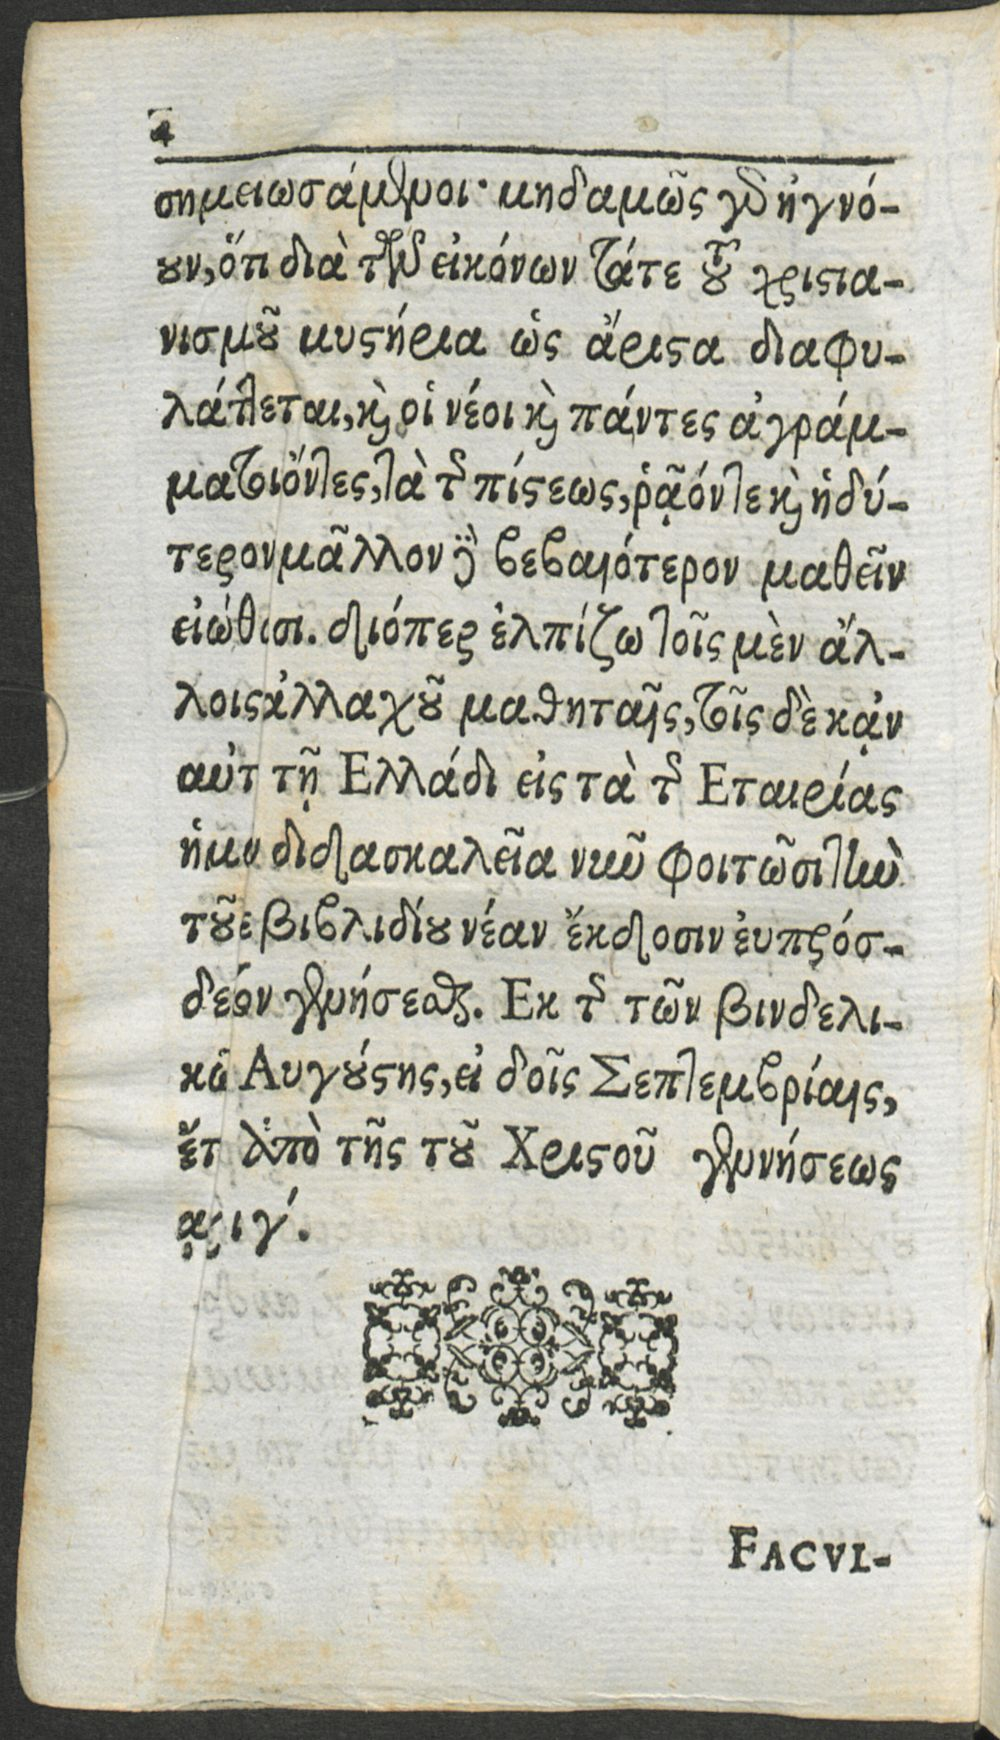 4
σημειωσάμενοι· μηδαμῶς γὰρ ἠγνό-
ουν, ὅτι διὰ τῶν εἰκόνων τάτε τοῦ χριστια-
νισμοῦ μυστήρια ὡς ἄριστα διαφυ-
λάττεται, καὶ οἱ νέοι καὶ πάντες ἀγράμ-
ματοι ὄντες, τὰ τῆς πίστεως, ῥᾷόν τε καὶ ἡδύ-
τερον μᾶλλον καὶ βεβαιότερον μαθεῖν
εἰώθασι. διόπερ ἐλπίζω τοῖς μὲν ἄλ-
λοις ἀλλαχοῦ μαθηταῖς, τοῖς δὲ κᾀν
αὐτ τῇ Ελλάδι εἰς τὰ τῆς Εταιρίας
ἡμῶν διδασκαλεῖα νῦν φοιτῶσι τὴν
τοῦδε βιβλιδίου νέαν ἔκδοσιν εὐπρόσ-
δεκτον γενήσεσθαι. Εκ τῆς τῶν βινδελι-
κῶν Αυγούστης, εἰδοῖς Σεπτεμβρίαις,
ἔτει ἀπὸ τῆς τοῦ Χριστοῦ γεννήσεως
αχιγʹ.
FACVL-